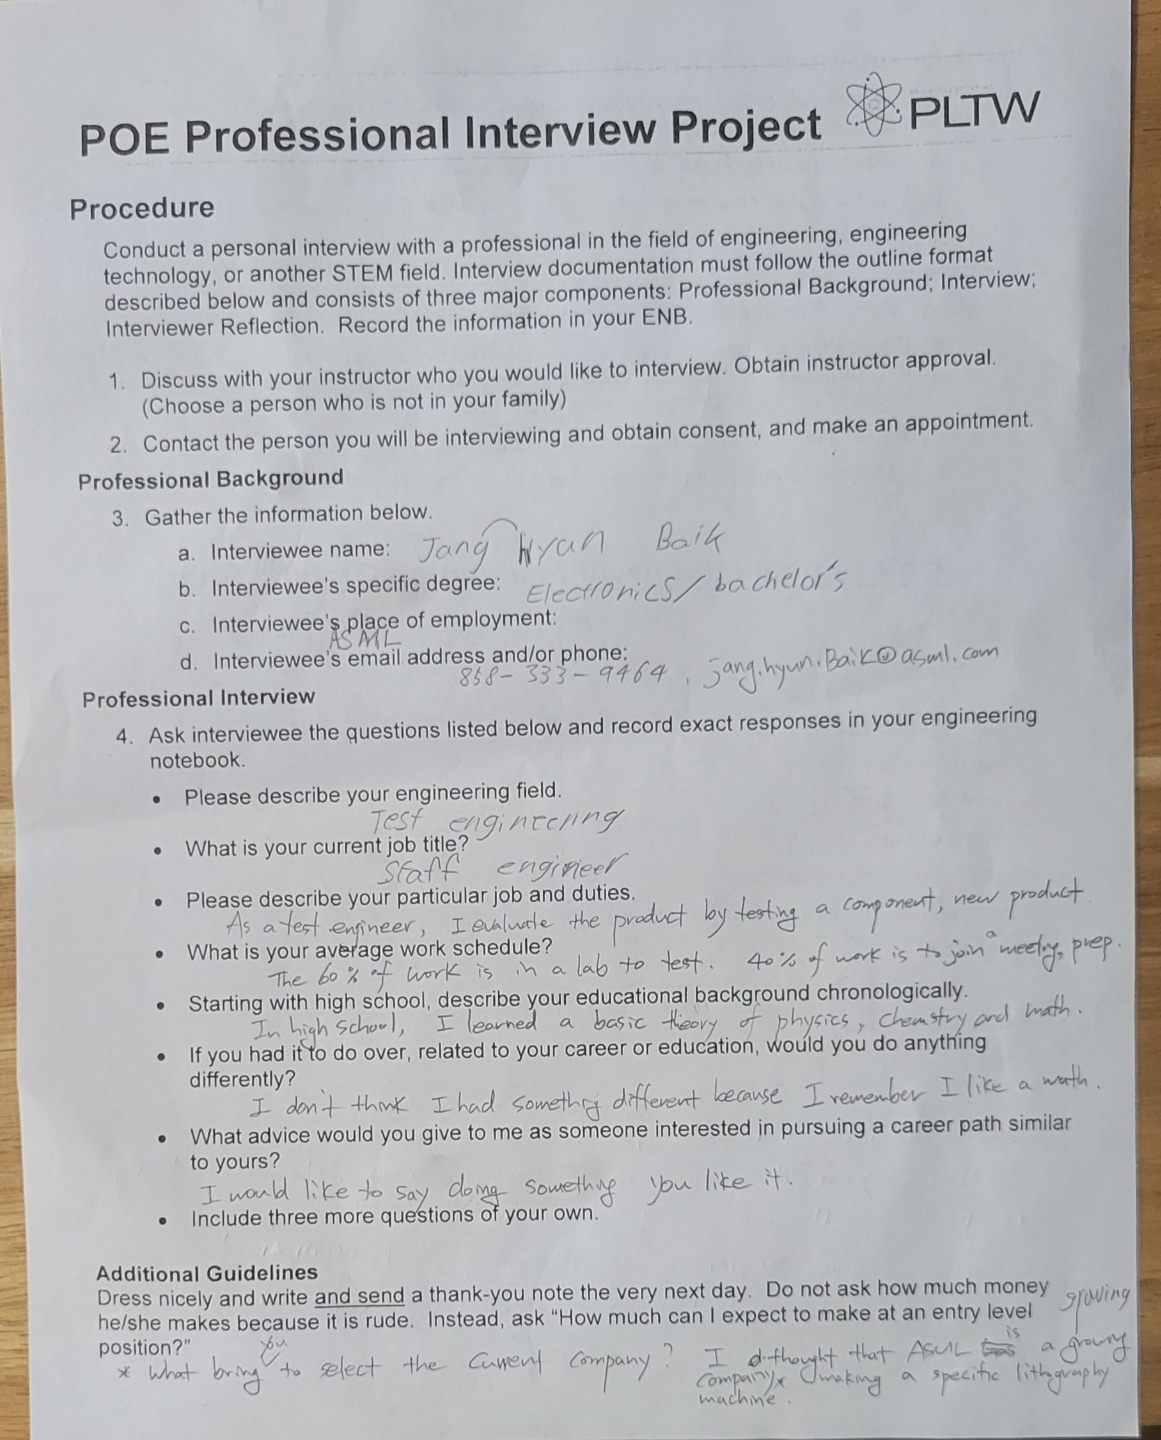 POE Professional Interview Project PLTW
Procedure
Conduct a personal interview with a professional in the field of engineering, engineering
technology, or another STEM field. Interview documentation must follow the outline format
described below and consists of three major components: Professional Background; Interview;
Interviewer Reflection. Record the information in your ENB.
1. Discuss with your instructor who you would like to interview. Obtain instructor approval.
(Choose a person who is not in your family)
2. Contact the person you will be interviewing and obtain consent, and make an appointment.
Professional Background
3. Gather the information below.
a. Interviewee name: Jang Hyun Baik
b. Interviewee's specific degree: Electronics/bachelor's
c. Interviewee's place of employment:
ASML
d. Interviewee's email address and/or phone:
858-333-9464, jang.hyun.Baik@asml.com
Professional Interview
4. Ask interviewee the questions listed below and record exact responses in your engineering
notebook.
• Please describe your engineering field.
Test engineering
• What is your current job title?
Staff engineer
• Please describe your particular job and duties.
As a test engineer, I evaluate the product by testing a component, new product.
• What is your average work schedule?
The 60% of work is in a lab to test. 40% of work is to join a meeting, prep.
• Starting with high school, describe your educational background chronologically.
In high school, I learned a basic theory of physics, chemstry and math.
• If you had it to do over, related to your career or education, would you do anything
differently?
I don't think I had something different because I remember I like a math.
• What advice would you give to me as someone interested in pursuing a career path similar
to yours?
I would like to say doing something you like it.
• Include three more questions of your own.
Additional Guidelines
Dress nicely and write and send a thank-you note the very next day. Do not ask how much money
he/she makes because it is rude. Instead, ask "How much can I expect to make at an entry level
position?"
growing
* What bring you to select the current company? I thought that ASML is a growing
company making a specific lithography
machine.